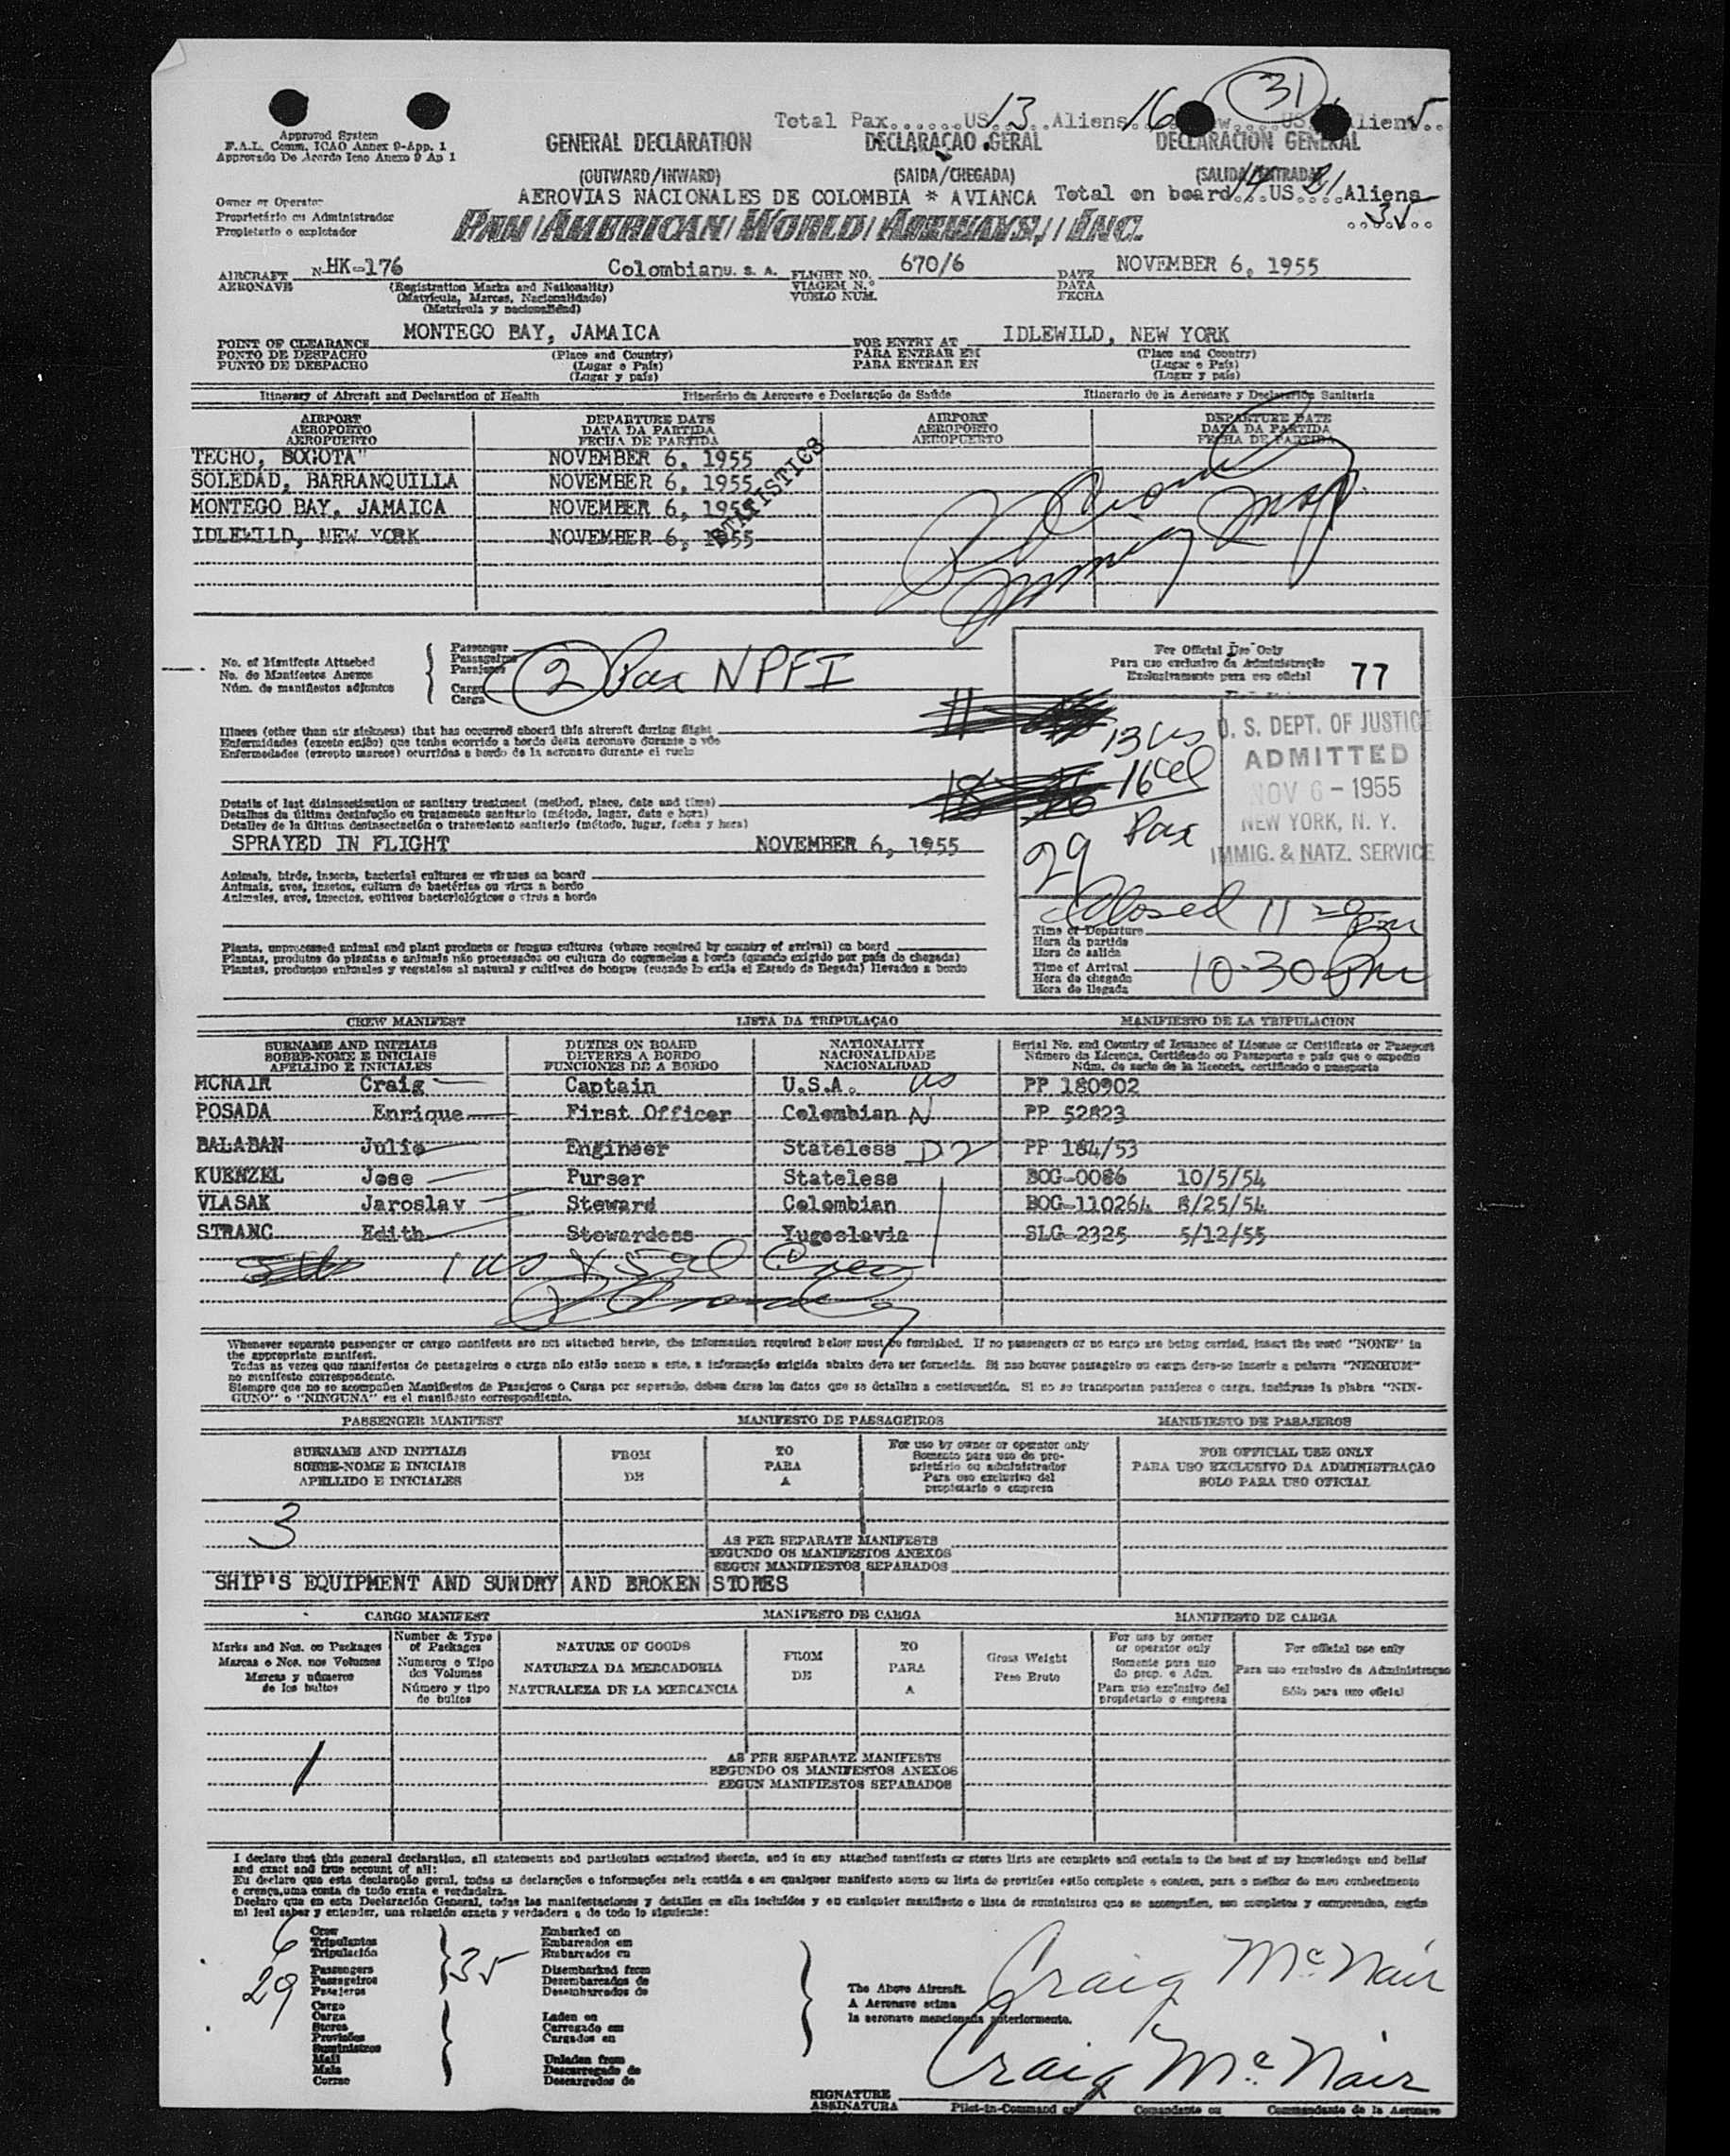 31
Total Pax......US 13..Aliens 16
Approved System
F.A.L. Comm. ICAO Annex 9-App. 1
Approvado De Acordo Icao Anexo 9 Ap 1
GENERAL DECLARATION DECLARAÇAO GERAL DECLARACION GENERAL
(OUTWARD/INWARD) (SAIDA/CHEGADA) (SALIDA/ENTRADA)
Owner or Operator
Proprietário ou Administrador
Propietario o explotador
AEROVIAS NACIONALES DE COLOMBIA * AVIANCA Total on board 14 US 21 Aliens
35
PAN AMERICAN WORLD AIRWAYS, INC.
AIRCRAFT N HK-176 Colombian U. S. A. FLIGHT NO. 670/6 DATE NOVEMBER 6, 1955
AERONAVE (Registration Marks and Nationality) VIAGEM N.º DATA
(Matrícula, Marcas, Nacionalidade) VUELO NUM. FECHA
(Matrícula y nacionalidad)
POINT OF CLEARANCE MONTEGO BAY, JAMAICA FOR ENTRY AT IDLEWILD, NEW YORK
PONTO DE DESPACHO (Place and Country) PARA ENTRAR EM (Place and Country)
PUNTO DE DESPACHO (Lugar e País) PARA ENTRAR EN (Lugar e País)
(Lugar y país) (Lugar y país)
Itinerary of Aircraft and Declaration of Health Itinerário da Aeronave e Declaração de Saúde Itinerario de la Aeronave y Declaración Sanitaria
AIRPORT DEPARTURE DATE AIRPORT DEPARTURE DATE
AEROPORTO DATA DA PARTIDA AEROPORTO DATA DA PARTIDA
AEROPUERTO FECHA DE PARTIDA AEROPUERTO FECHA DE PARTIDA
TECHO, BOGOTA" NOVEMBER 6, 1955
SOLEDAD, BARRANQUILLA NOVEMBER 6, 1955
MONTEGO BAY, JAMAICA NOVEMBER 6, 1955
IDLEWILD, NEW YORK NOVEMBER 6, 1955
STATISTICS
No. of Manifests Attached
No. de Manifestos Anexos
Núm. de manifiestos adjuntos
Passenger
Passageiros
Pasajeros
Cargo
Carga
2 Pax NPFI
For Official Use Only
Para uso exclusivo da Administração
Exclusivamente para uso oficial
77
Illness (other than air sickness) that has occurred aboard this aircraft during flight
Enfermidades (exceto enjôo) que tenha ocorrido a bordo desta aeronave durante o vôo
Enfermedades (excepto mareos) ocurridas a bordo de la aeronave durante el vuelo
11
13 US
18
16 al
29 Pax
U. S. DEPT. OF JUSTICE
ADMITTED
NOV 6 - 1955
NEW YORK, N. Y.
IMMIG. & NATZ. SERVICE
Details of last disinsectisation or sanitary treatment (method, place, date and time)
Detalhes da última desinfeção ou tratamento sanitario (método, lugar, data e hora)
Detalles de la última desinsectación o tratamiento sanitario (método, lugar, fecha y hora)
SPRAYED IN FLIGHT NOVEMBER 6, 1955
Animals, birds, insects, bacterial cultures or viruses on board
Animais, aves, insetos, cultura de bactérias ou virus a bordo
Animales, aves, insectos, cultivos bacteriológicos o virus a bordo
Closed 11 20 Pm
Time of Departure
Hora da partida
Hora de salida
Plants, unprocessed animal and plant products or fungus cultures (where required by country of arrival) on board
Plantas, produtos de plantas e animais não processados ou cultura de cogumelos a bordo (quando exigido por país de chegada)
Plantas, productos animales y vegetales al natural y cultivos de hongos (cuando lo exija el Estado de llegada) llevados a bordo
Time of Arrival 10-30 Pm
Hora da chegada
Hora de llegada
CREW MANIFEST LISTA DA TRIPULAÇAO MANIFIESTO DE LA TRIPULACION
SURNAME AND INITIALS DUTIES ON BOARD NATIONALITY Serial No. and Country of Issuance of License or Certificate or Passport
SOBRE-NOME E INICIAIS DEVERES A BORDO NACIONALIDADE Número da Licença, Certificado ou Passaporte e país que o expediu
APELLIDO E INICIALES FUNCIONES DE A BORDO NACIONALIDAD Núm. de serie de la licencia, certificado o pasaporte
MCNAIR Craig Captain U.S.A. US PP 180902
POSADA Enrique First Officer Colombian N PP 52823
BALABAN Julio Engineer Stateless D2 PP 184/53
KUENZEL Jose Purser Stateless BOG-0086 10/5/54
VLASAK Jaroslav Steward Colombian BOG-110264 8/25/54
STRANC Edith Stewardess Yugoslavia SLG-2325 5/12/55
1 US & 5 al Crew
Whenever separate passenger or cargo manifests are not attached hereto, the information required below must be furnished. If no passengers or no cargo are being carried, insert the word "NONE" in
the appropriate manifest.
Todas as vezes que manifestos de passageiros e carga não estão anexo a este, a informação exigida abaixo deve ser fornecida. Si nao houver passageiro ou carga deve-se inserir a palavra "NENHUM"
no manifesto correspondente.
Siempre que no se acompañen Manifiestos de Pasajeros o Carga por separado, deben darse los datos que se detallan a continuación. Si no se transportan pasajeros o carga, inclúyase la plabra "NIN-
GUNO" o "NINGUNA" en el manifiesto correspondiente.
PASSENGER MANIFEST MANIFESTO DE PASSAGEIROS MANIFIESTO DE PASAJEROS
SURNAME AND INITIALS FROM TO For use by owner or operator only FOR OFFICIAL USE ONLY
SOBRE-NOME E INICIAIS DE PARA Somente para uso do pro- PARA USO EXCLUSIVO DA ADMINISTRAÇÃO
APELLIDO E INICIALES A prietário ou administrador SOLO PARA USO OFICIAL
Para uso exclusivo del
propietario o empresa
3
AS PER SEPARATE MANIFESTS
SEGUNDO OS MANIFESTOS ANEXOS
SEGUN MANIFIESTOS SEPARADOS
SHIP'S EQUIPMENT AND SUNDRY AND BROKEN STORES
CARGO MANIFEST MANIFESTO DE CARGA MANIFIESTO DE CARGA
Marks and Nos. on Packages Number & Type of Packages NATURE OF GOODS FROM TO Gross Weight For use by owner or operator only For official use only
Marcas e Nos. nos Volumes Numeros e Tipo dos Volumes NATUREZA DA MERCADORIA DE PARA Peso Bruto Somente para uso do prop. e Adm. Para uso exclusivo da Administraçao
Marcas y números de los bultos Número y tipo de bultos NATURALEZA DE LA MERCANCIA A Para uso exclusivo del propietario o empresa Sólo para uso oficial
1
AS PER SEPARATE MANIFESTS
SEGUNDO OS MANIFESTOS ANEXOS
SEGUN MANIFIESTOS SEPARADOS
I declare that this general declaration, all statements and particulars contained therein, and in any attached manifests or stores lists are complete and contain to the best of my knowledge and belief
and exact and true account of all:
Eu declaro que esta declaração geral, todas as declarações e informações nela contida e em qualquer manifesto anexo ou lista de provisões estão completo e contem, para o melhor do meu conhecimento
e crença, uma conta de tudo exata e verdadeira.
Declaro que en esta Declaración General, todas las manifestaciones y detalles en ella incluidos y en cualquier manifiesto o lista de suministros que se acompañen, son completos y comprenden, según
mi leal saber y entender, una relación exacta y verdadera e de todo lo siguiente:
6 Crew
Tripulantes
Tripulación
29 Passengers
Passageiros
Pasajeros
35
Cargo
Carga
Stores
Provisões
Suministros
Mail
Mala
Correo
Embarked on
Embarcados em
Embarcados en
Disembarked from
Desembarcados de
Desembarcados de
Laden on
Carregado em
Cargados en
Unladen from
Descarregado de
Descargados de
The Above Aircraft.
A Aeronave acima
la aeronave mencionada anteriormente.
Craig McNair
Craig McNair
SIGNATURE
ASSINATURA
Pilot-in-Command or Comandante ou Commandante de la Aeronave